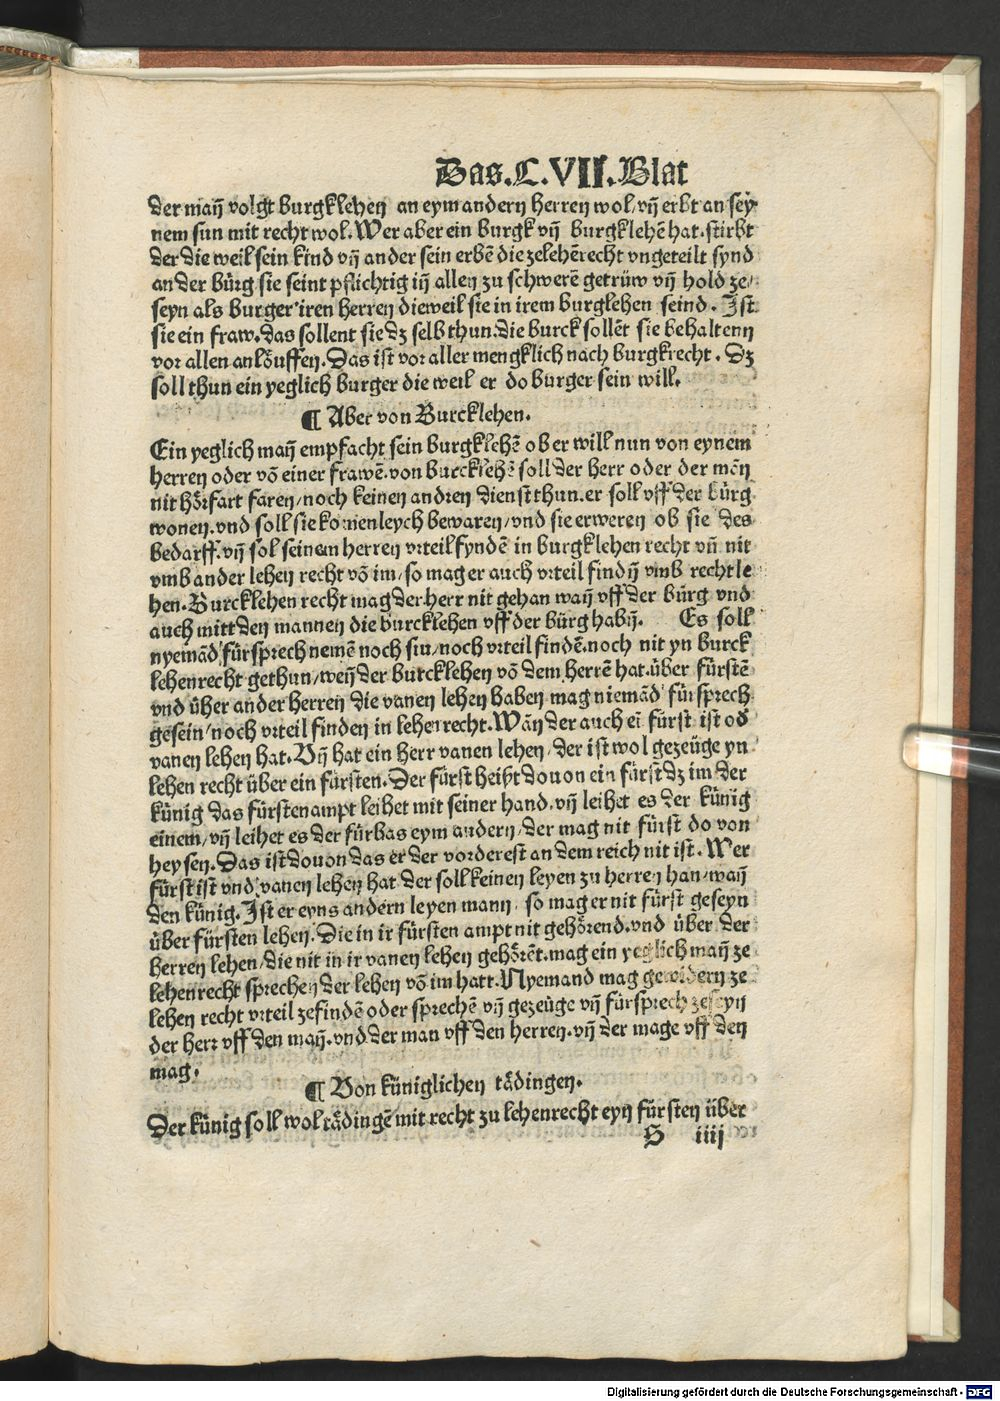 Das.C.VII.Blat
der mañ volgt burgklehen an eym andern herren wol/ vñ erbt an sey⸗
nem sun mit recht wol. Wer aber ein burgk vñ burgklehē hat. stirbt
der die weil sein kind vñ ander sein erbē die zelehērecht vngeteilt synd
an der bürg sie seint pflichtig iñ allen zu schwerē getrüw vñ hold ze⸗
seyn als burger iren herren dieweil sie in irem burglehen seind. Ist
sie ein fraw. das sollent sie dz selb thun. die burck sollēt sie behaltenn
vor allen anlöuffen. Das ist vor aller mengklich nach burgkrecht. Dz
soll thun ein yeglich burger die weil er do burger sein will.
¶ Aber von Burcklehen.
Ein yeglich mañ empfacht sein burgklehē ob er will nun von eynem
herren oder vō einer frawē. von burcklehē soll der herr oder der mañ
nit hörfart faren/ noch keinen andren dienst thun. er soll vff der bürg
wonen. vnd soll sie leych bewaren/ vnd sie erweren ob sie des
bedarff. vñ sol seinem herren vrteil fyndē in burgklehen recht vñ nit
vmb ander lehen recht vō im/ so mag er auch vrteil find vmb recht le
hen. Burcklehen recht mag der herr nit gehan wañ vff der bürg vnd
auch mitt den mannen die burcklehen vff der bürg habñ. Es soll
nyemād fürsprech nemē noch sin/ noch vrteil findē. noch nit yn burck
lehenrecht gethun/ weñ der burcklehen vō dem herrē hat. über fürstē
vnd über ander herren die vanen lehen haben mag niemād fürsprech
gesein/ noch vrteil finden in lehenrecht. Wañ der auch eī fürst ist od
vanen lehen hat. Vñ hat ein herr vanen lehen/ der ist wol gezeüge yn
lehen recht über ein fürsten. Der fürst heiht douon ein fürst dz im der
künig das fürstenampt leihet mit seiner hand. vñ leihet es der künig
einem/ vñ leihet es der fürbas eym andern/ der mag nit fürst do von
heysen. Das ist douon das er der vorderest an dem reich nit ist. Wer
fürst ist vnd vanen lehen hat der soll keinen leyen zu herren han/ wañ
den künig. Ist er eyns andern leyen mann/ so mag er nit fürst geseyn
über fürsten lehen. Die in ir fürsten ampt nit gehörend. vnd über der
herren lehen/ die nit in ir vanen lehen gehörēt. mag ein yeglich mañ ze
lehenrecht sprechen der lehen vō im hatt. Nyemand mag ze
lehen recht vrteil zefindē oder sprechē vñ gezeüge vñ fürsprech zeseyn
der herr vff den mañ. vnd der man vff den herren. vñ der mage vff den
mag.
¶ Von küniglichen tädingen.
Der künig soll wol tädingē mit recht zu lehenrecht eyn fürsten über
S iiij
Digitalisierung gefördert durch die Deutsche Forschungsgemeinschaft - DFG